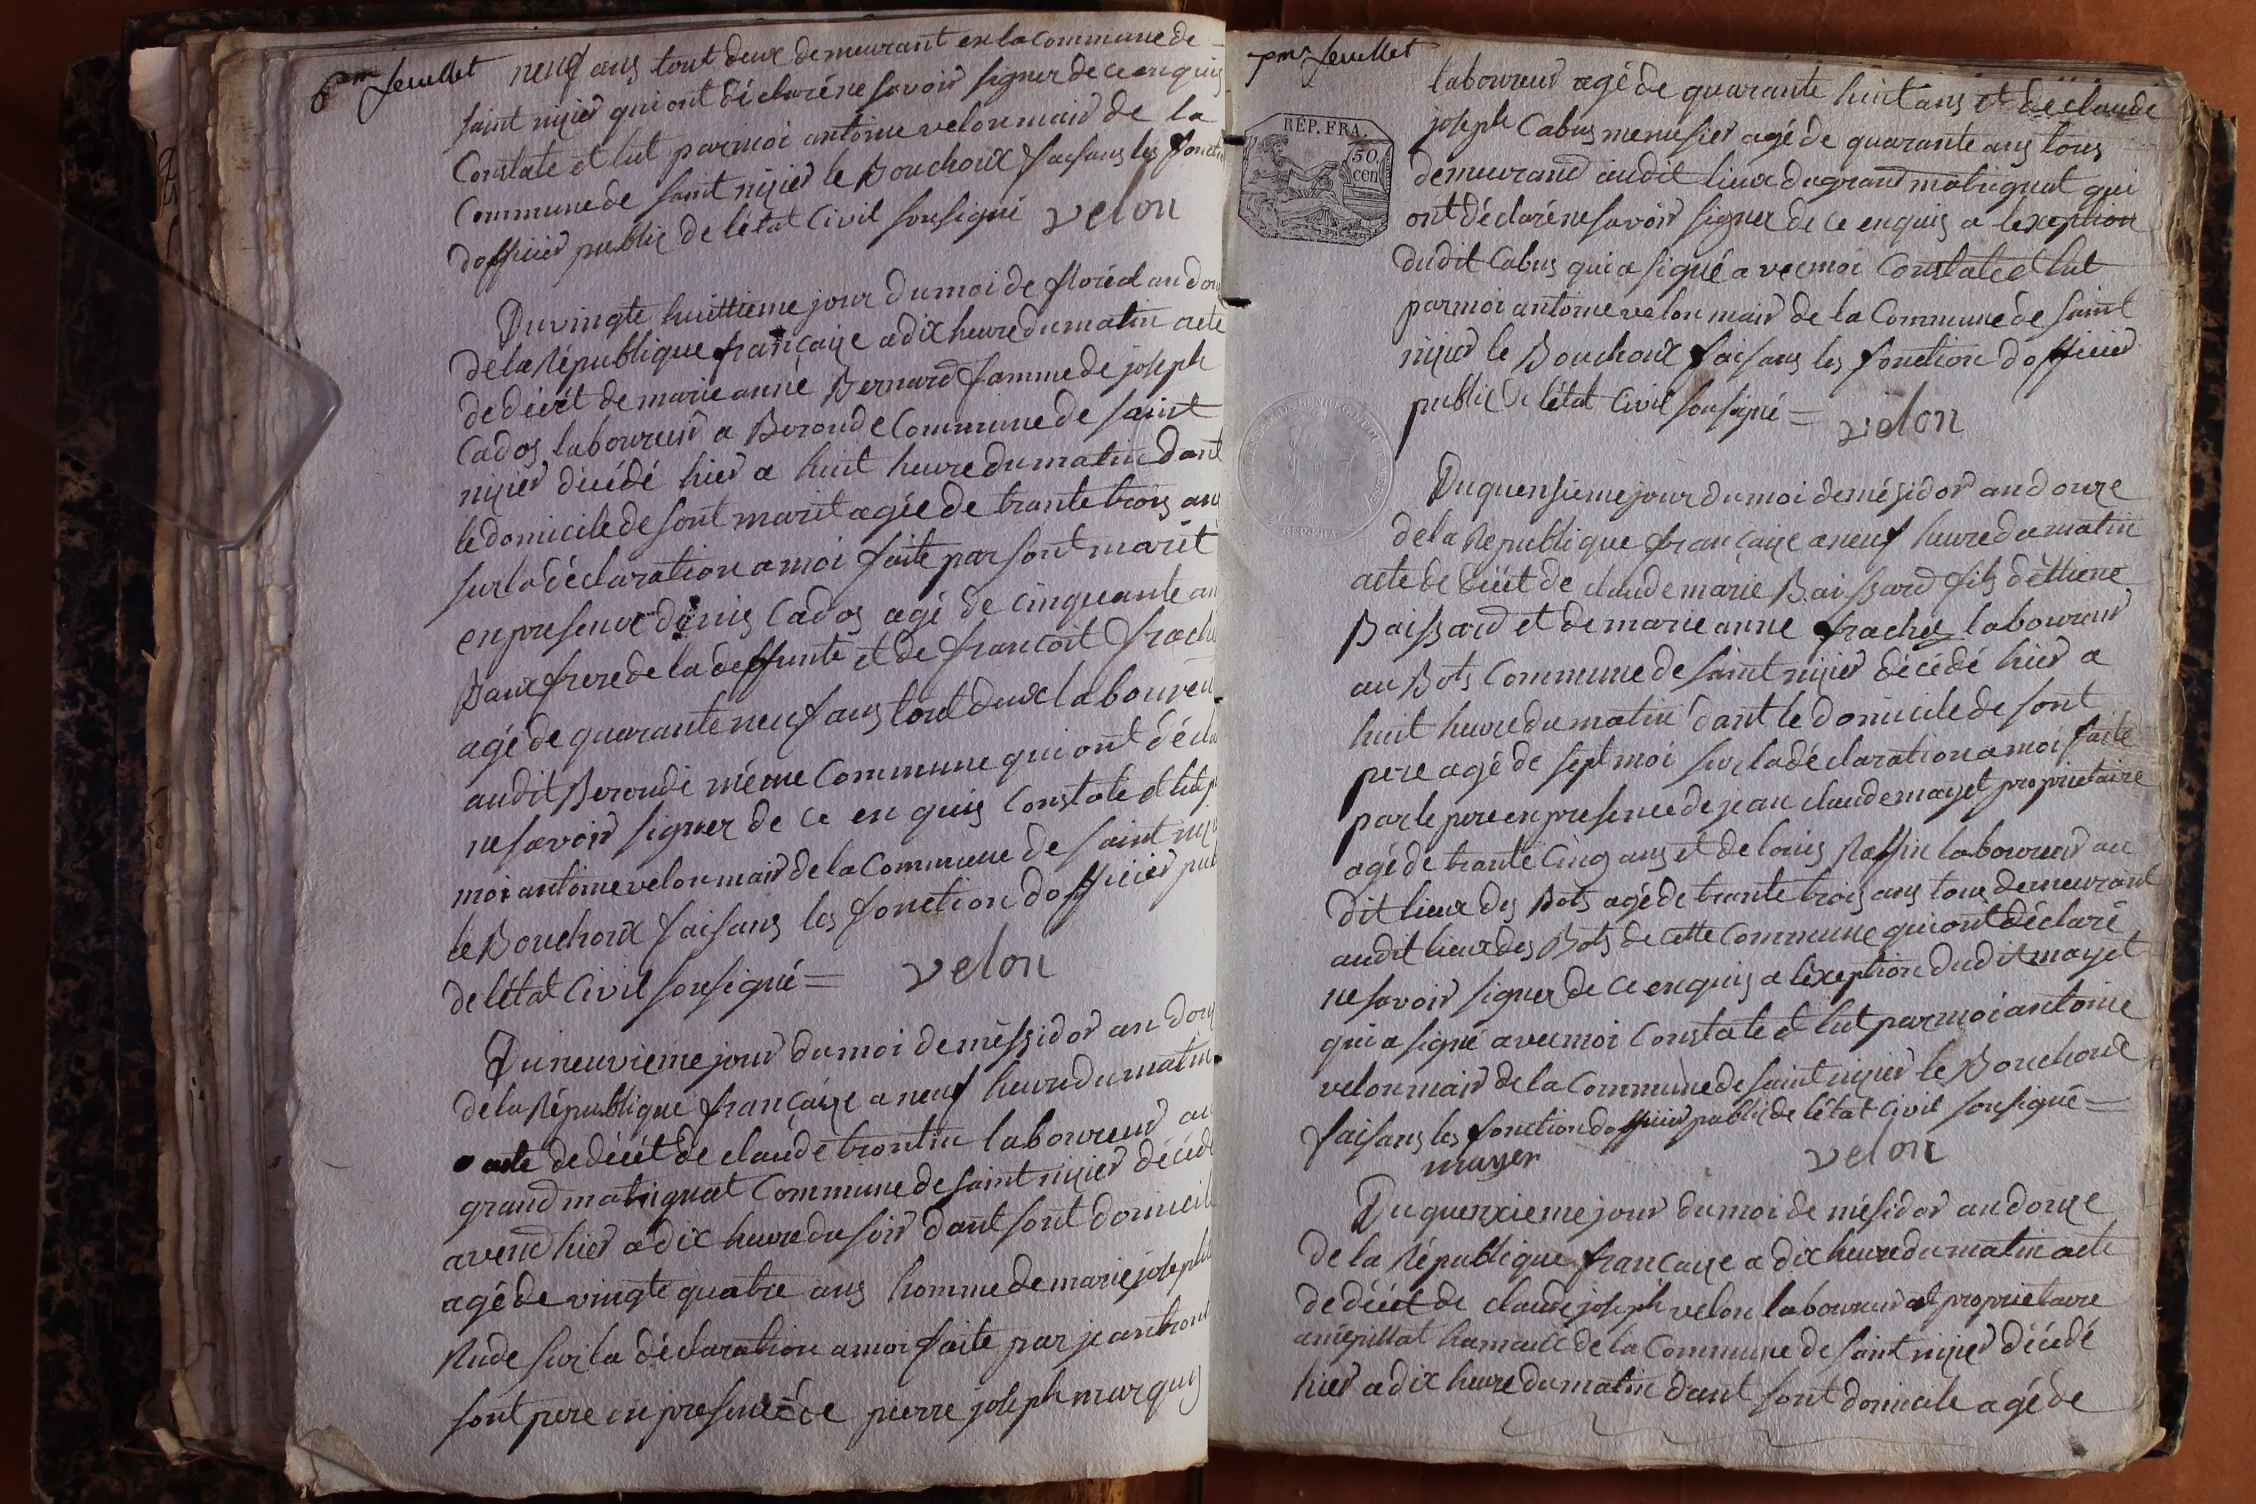 6me feuillet
neuf ans tout deux demeurant en la commune de
saint nizier qui ont déclaré ne savoir signer de ce enquis
Constate et lut par moi antoine velon mair de la
Commune de saint nizier le Bouchoux faisans les fonction
dofficier public de létat Civil sousigné velon
Du vingte huittieme jour du moi de floréal an douze
de la République française a dix heure du matin acte
de décét de marie anne Bernard famme de joseph
Cados laboureur a Beronde Commune de saint
nizier décédé hier a huit heure du matin dant
le domicile de sont marit agée de trante trois ans
sur la déclaration a moi faite par sont marit
en presence denis Cados agé de cinquante an
Baux frere de la deffunte et de francoit frache
agé de quarante neuf ans tout deux laboureur
audit Beronde méme Commune qui ont décla
ne savoir signer de ce en quis Constate et lut p
moi antoine velon mair de la Commune de saint niz
le Bouchoux faisans les fonction dofficier pub
de létat Civil sousigné = velon
Du neuvieme jour du moi de méssidor an douze
de la République française a neuf heure du matin
acte de décét de claude trontin laboureur au
grand matrignat Commune de saint nizier décédé
avend hier a dix heure du soir dant sont domicile
agé de vingte quatre ans homme de marie josephe
Rude sur la déclaration a moi faite par jean tront
sont pere en presence de pierre joseph marquis
pmr feuillet
RÉP. FRA.
50
cen
laboureur agé de quarante huit ans et de claude
joseph Cabus menusier agé de quarante ans tous
demeurand audit lieux du grand matrignat qui
ont déclaré ne savoir signer de ce enquis a lexeption
dudit Cabus qui a signé avec moi Constate et lut
par moi antoine velon mair de la Commune de saint
nizier le Bouchoux faisans les fonction dofficier
public de létat Civil sousigné = velon
Du quensieme jour du moi de mésidor an douze
de la République française a neuf heure du matin
acte de décét de claude marie Baissard fils détiene
Baissard et de marie anne frachy laboureur
au Bots Commune de saint nizier décédé hier a
huit heure du matin dant le domicile de sont
pere agé de sept moi sur la déclaration a moi faite
par le pere en presence de jean claude mayet proprietaire
agé de trante Cinq ans et de louis Raffin laboureur au
dit lieux des Bots agé de trante trois ans tous demeurant
audit lieux des Bots de cette Commune qui ont déclaré
ne savoir signer de ce enquis a lexeption dudit mayet
qui a signé avec moi Constate et lut par moi antoine
velon mair de la Commune de saint nizier le Bouchoux
faisans les fonction dofficier public de létat Civil sousigné =
mayer velon
Du quenzieme jour du moi de mésidor an douze
de la République française a dix heure du matin acte
de décét de claude joseph velon laboureur et proprietaire
a hamaux de la Commune de saint nizier décédé
hier a dix heure du matin dant sont domicile agé de